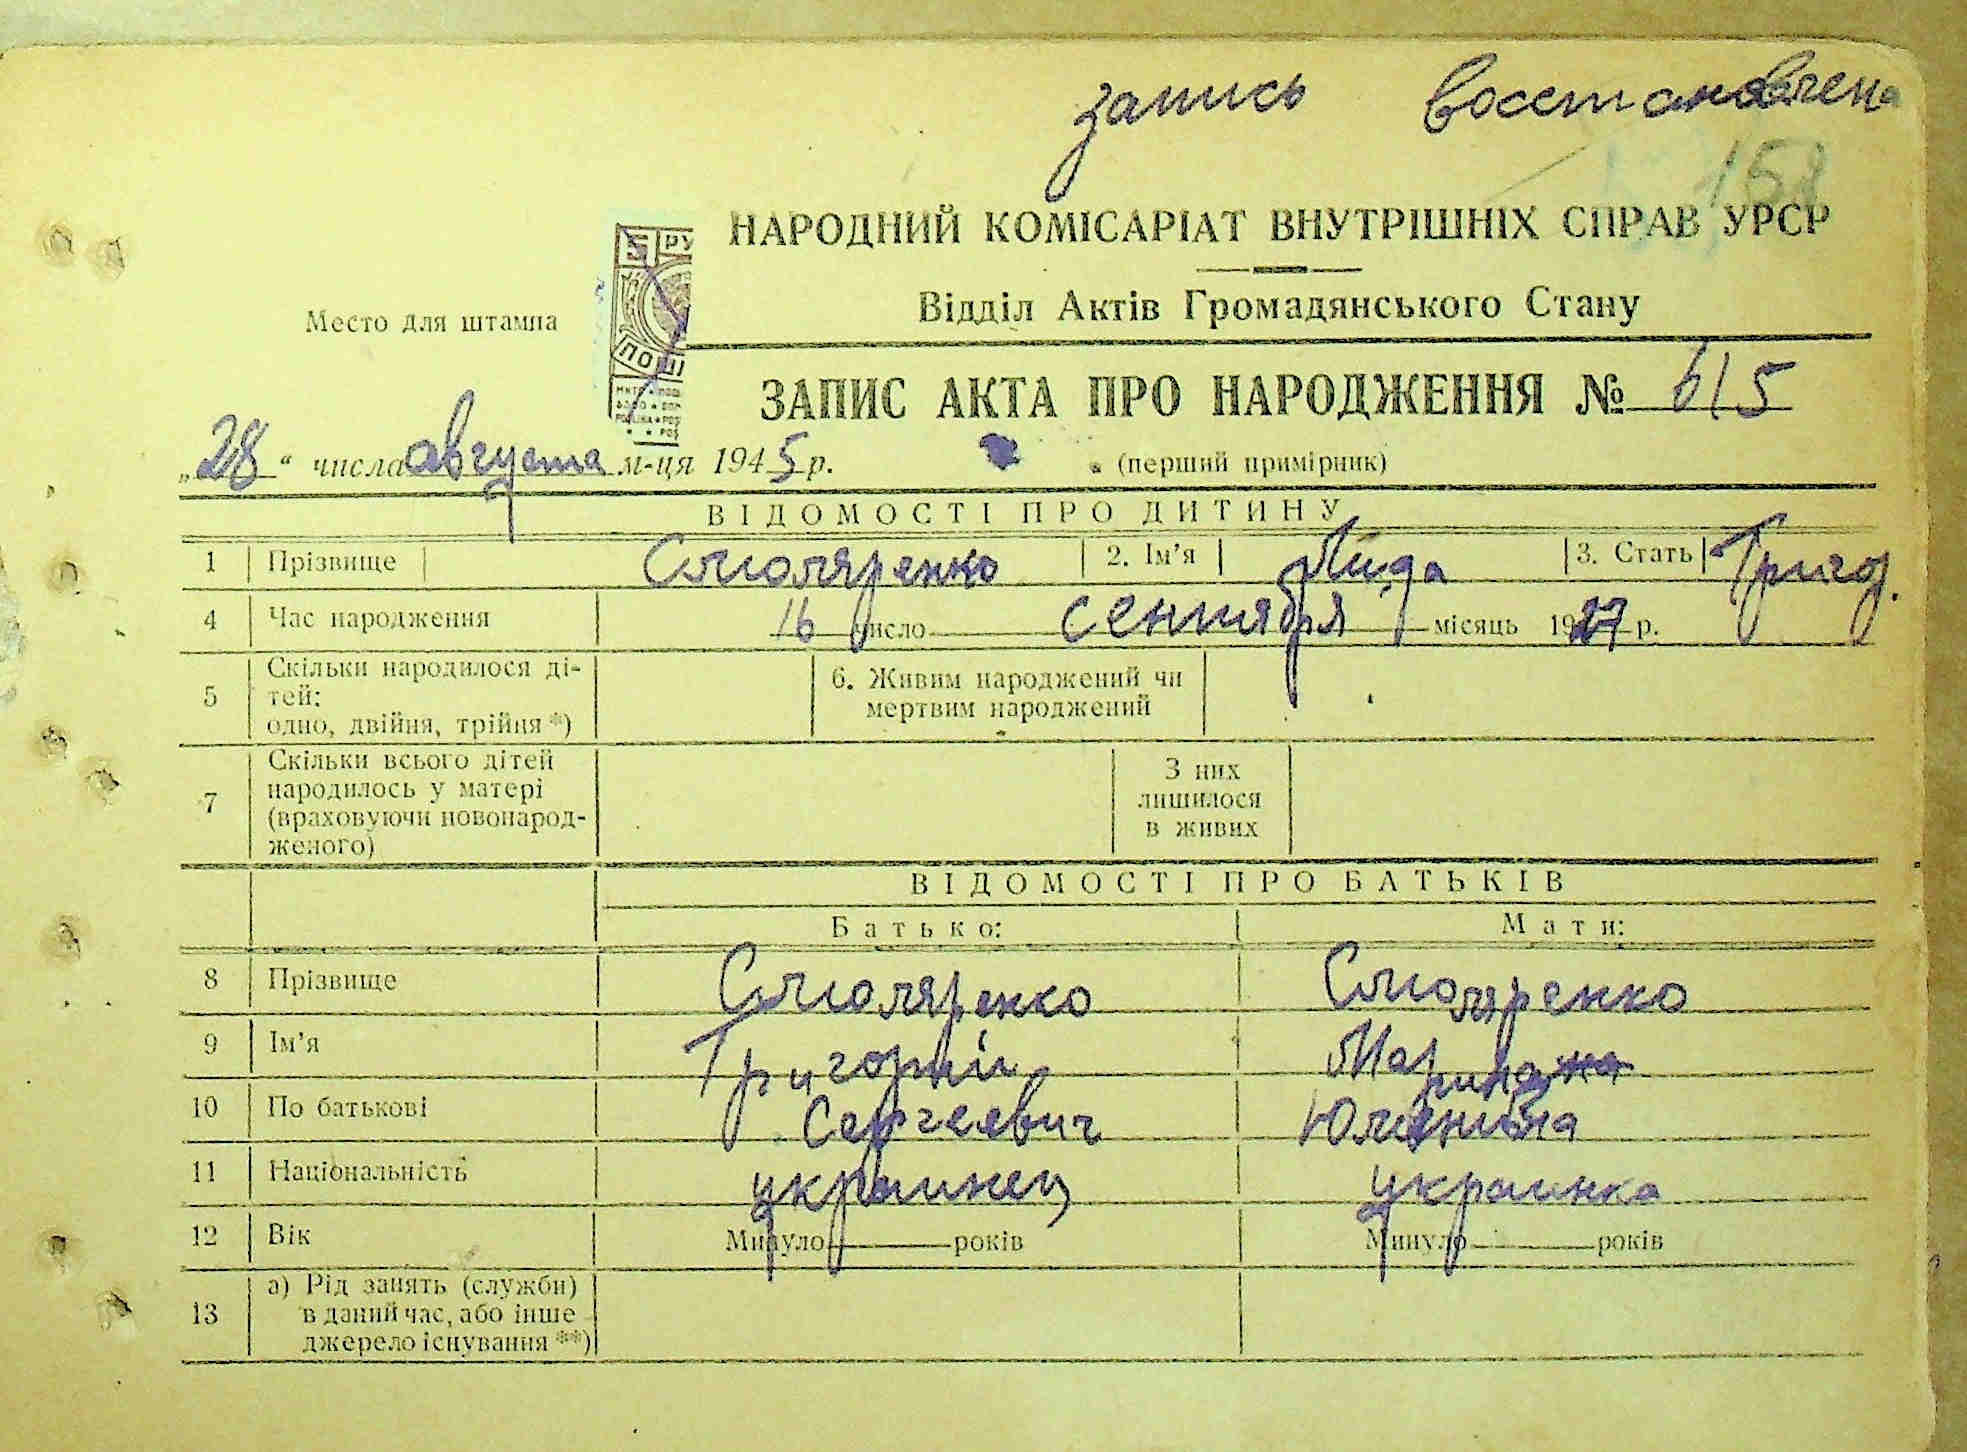 запись восстановлена
158
НАРОДНИЙ КОМІСАРІАТ ВНУТРІШНІХ СПРАВ УРСР
Відділ Актів Громадянського Стану
Место для штампа
5 РУ
ПОШ
ЗАПИС АКТА ПРО НАРОДЖЕННЯ № 615
„28“ числа августа м-ця 1945 р.
(перший примірник)
ВІДОМОСТІ ПРО ДИТИНУ
1 Прізвище Столяренко 2. Ім'я Лида 3. Стать Григор.
4 Час народження 16 число сентября місяць 1927 р.
5 Скільки народилося ді-
тей:
одно, двійня, трійня *)
6. Живим народжений чи
мертвим народжений
7 Скільки всього дітей
народилось у матері
(враховуючи новонарод-
женого)
З них
лишилося
в живих
ВІДОМОСТІ ПРО БАТЬКІВ
Батько: Мати:
8 Прізвище Столяренко Столяренко
9 Ім'я Григорий Марина
10 По батькові Сергеевич
11 Національність украинец украинка
12 Вік Минуло років Минуло років
13 а) Рід занять (служби)
в даний час, або інше
джерело існування **)